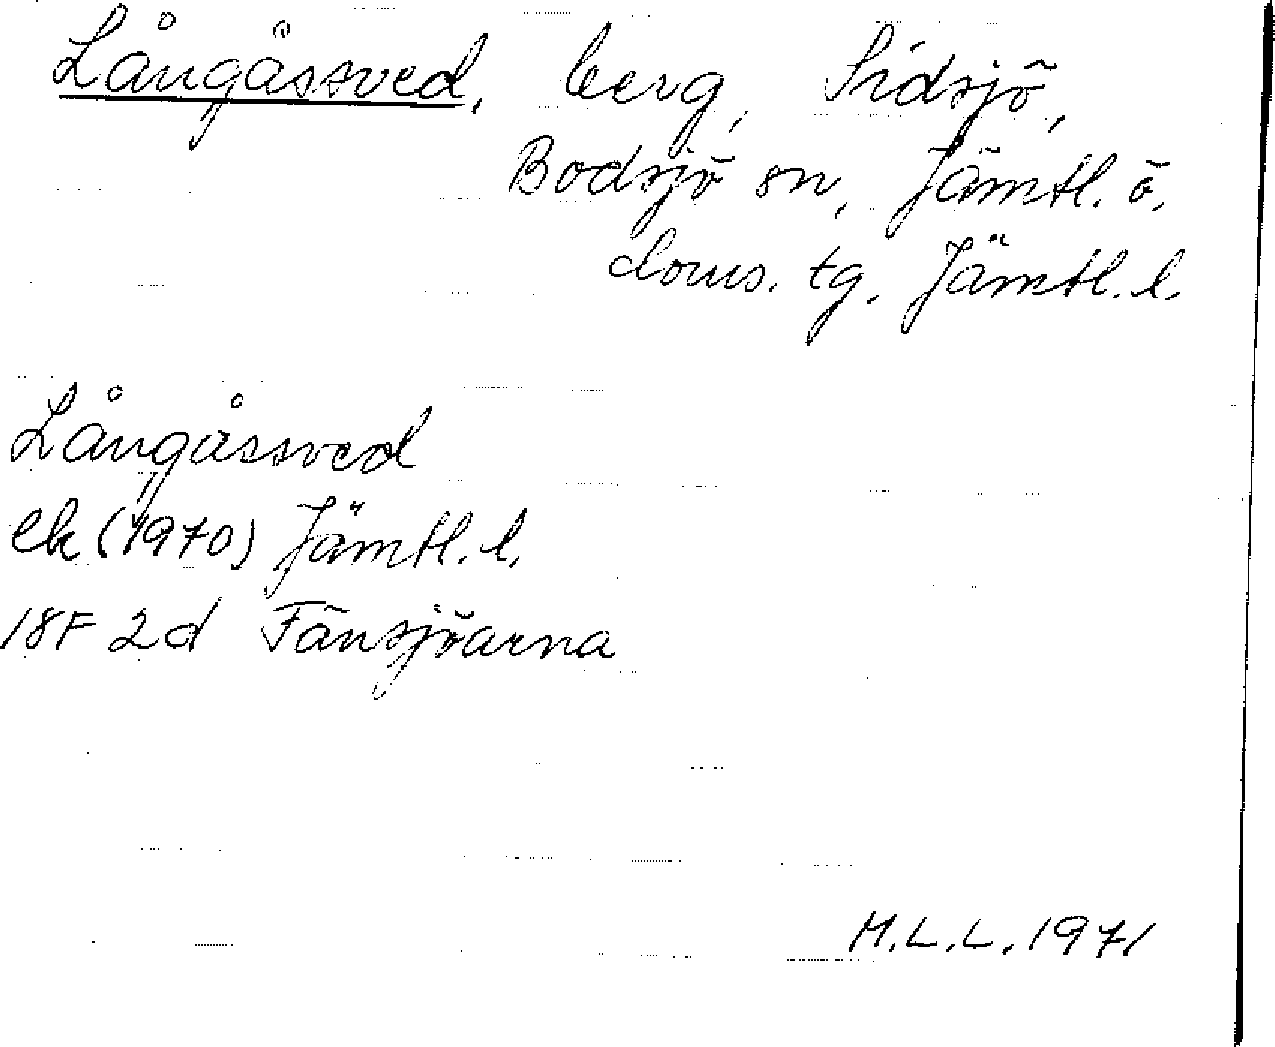 Långåssved, berg, Sidsjö,
Bodsjö sn, Jämtl. ö.
doms. tg, Jämtl. l.
Långåssved
ek (1970) Jämtl. l.
18F 2d Fänsjöarna
M.L.L. 1971